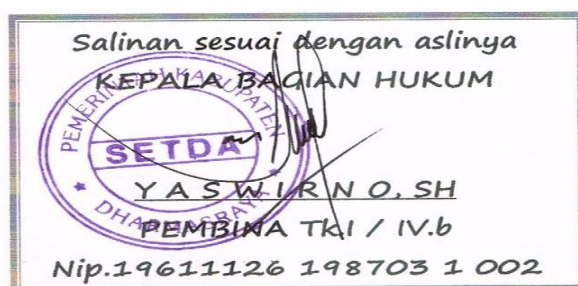 Salinan sesuai dengan aslinya
KEPALA BAGIAN HUKUM
PEMERINTAH KABUPATEN
SETDA
Y A S W I R N O, SH
DHARMASRAYA
PEMBINA TK.I / IV.b
Nip.19611126 198703 1 002